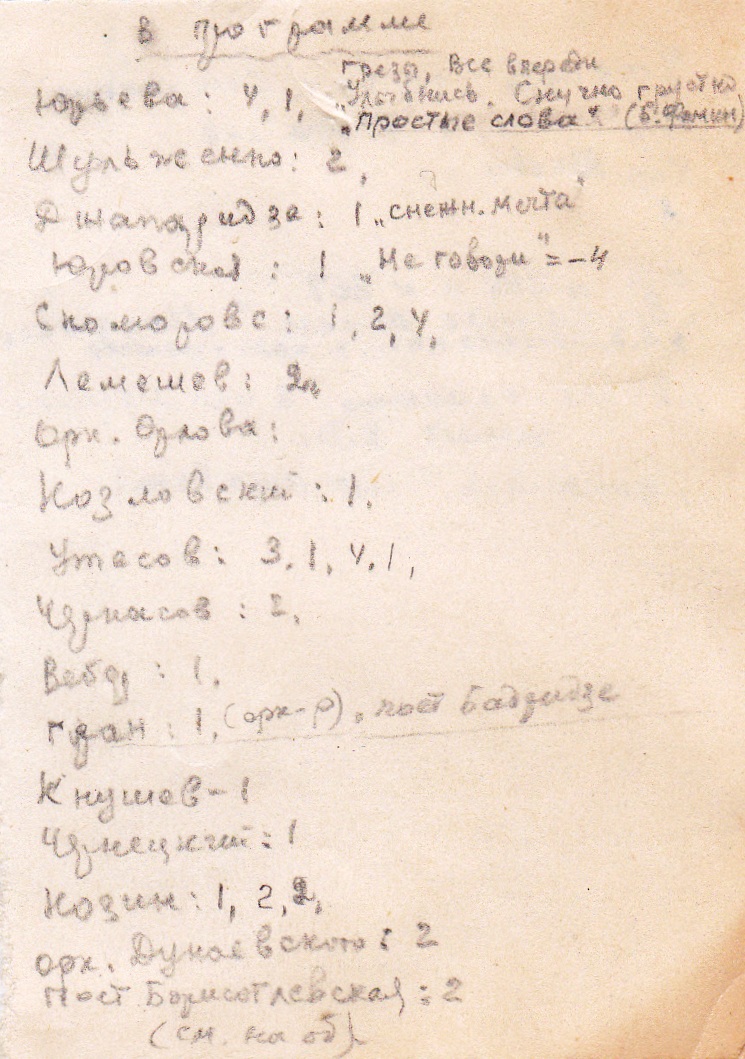 в программе
грёзы, Все впереди
Юрьева: 4, 1, „Улыбнись. Скучно грустно
„Простые слова" (Б. Фомин)
Шульженко: 2,
Джапаридзе: 1 „снежн. мечта"
Юровская: 1 „Не говори" = -4
Скоморовс: 1, 2, 4,
Лемешев: 2,
Орк. Орлова:
Козловский: 1.
Утесов: 3. 1, 4. 1,
Черкасов: 2,
Вебер: 1.
Гран: 1, (орк-р), поёт Бадридзе
Кнушев - 1
Чернецкий: 1
Козин: 1, 2, 2,
орк. Дунаевского: 2
Поёт Борисоглевская: 2
(см. на об)